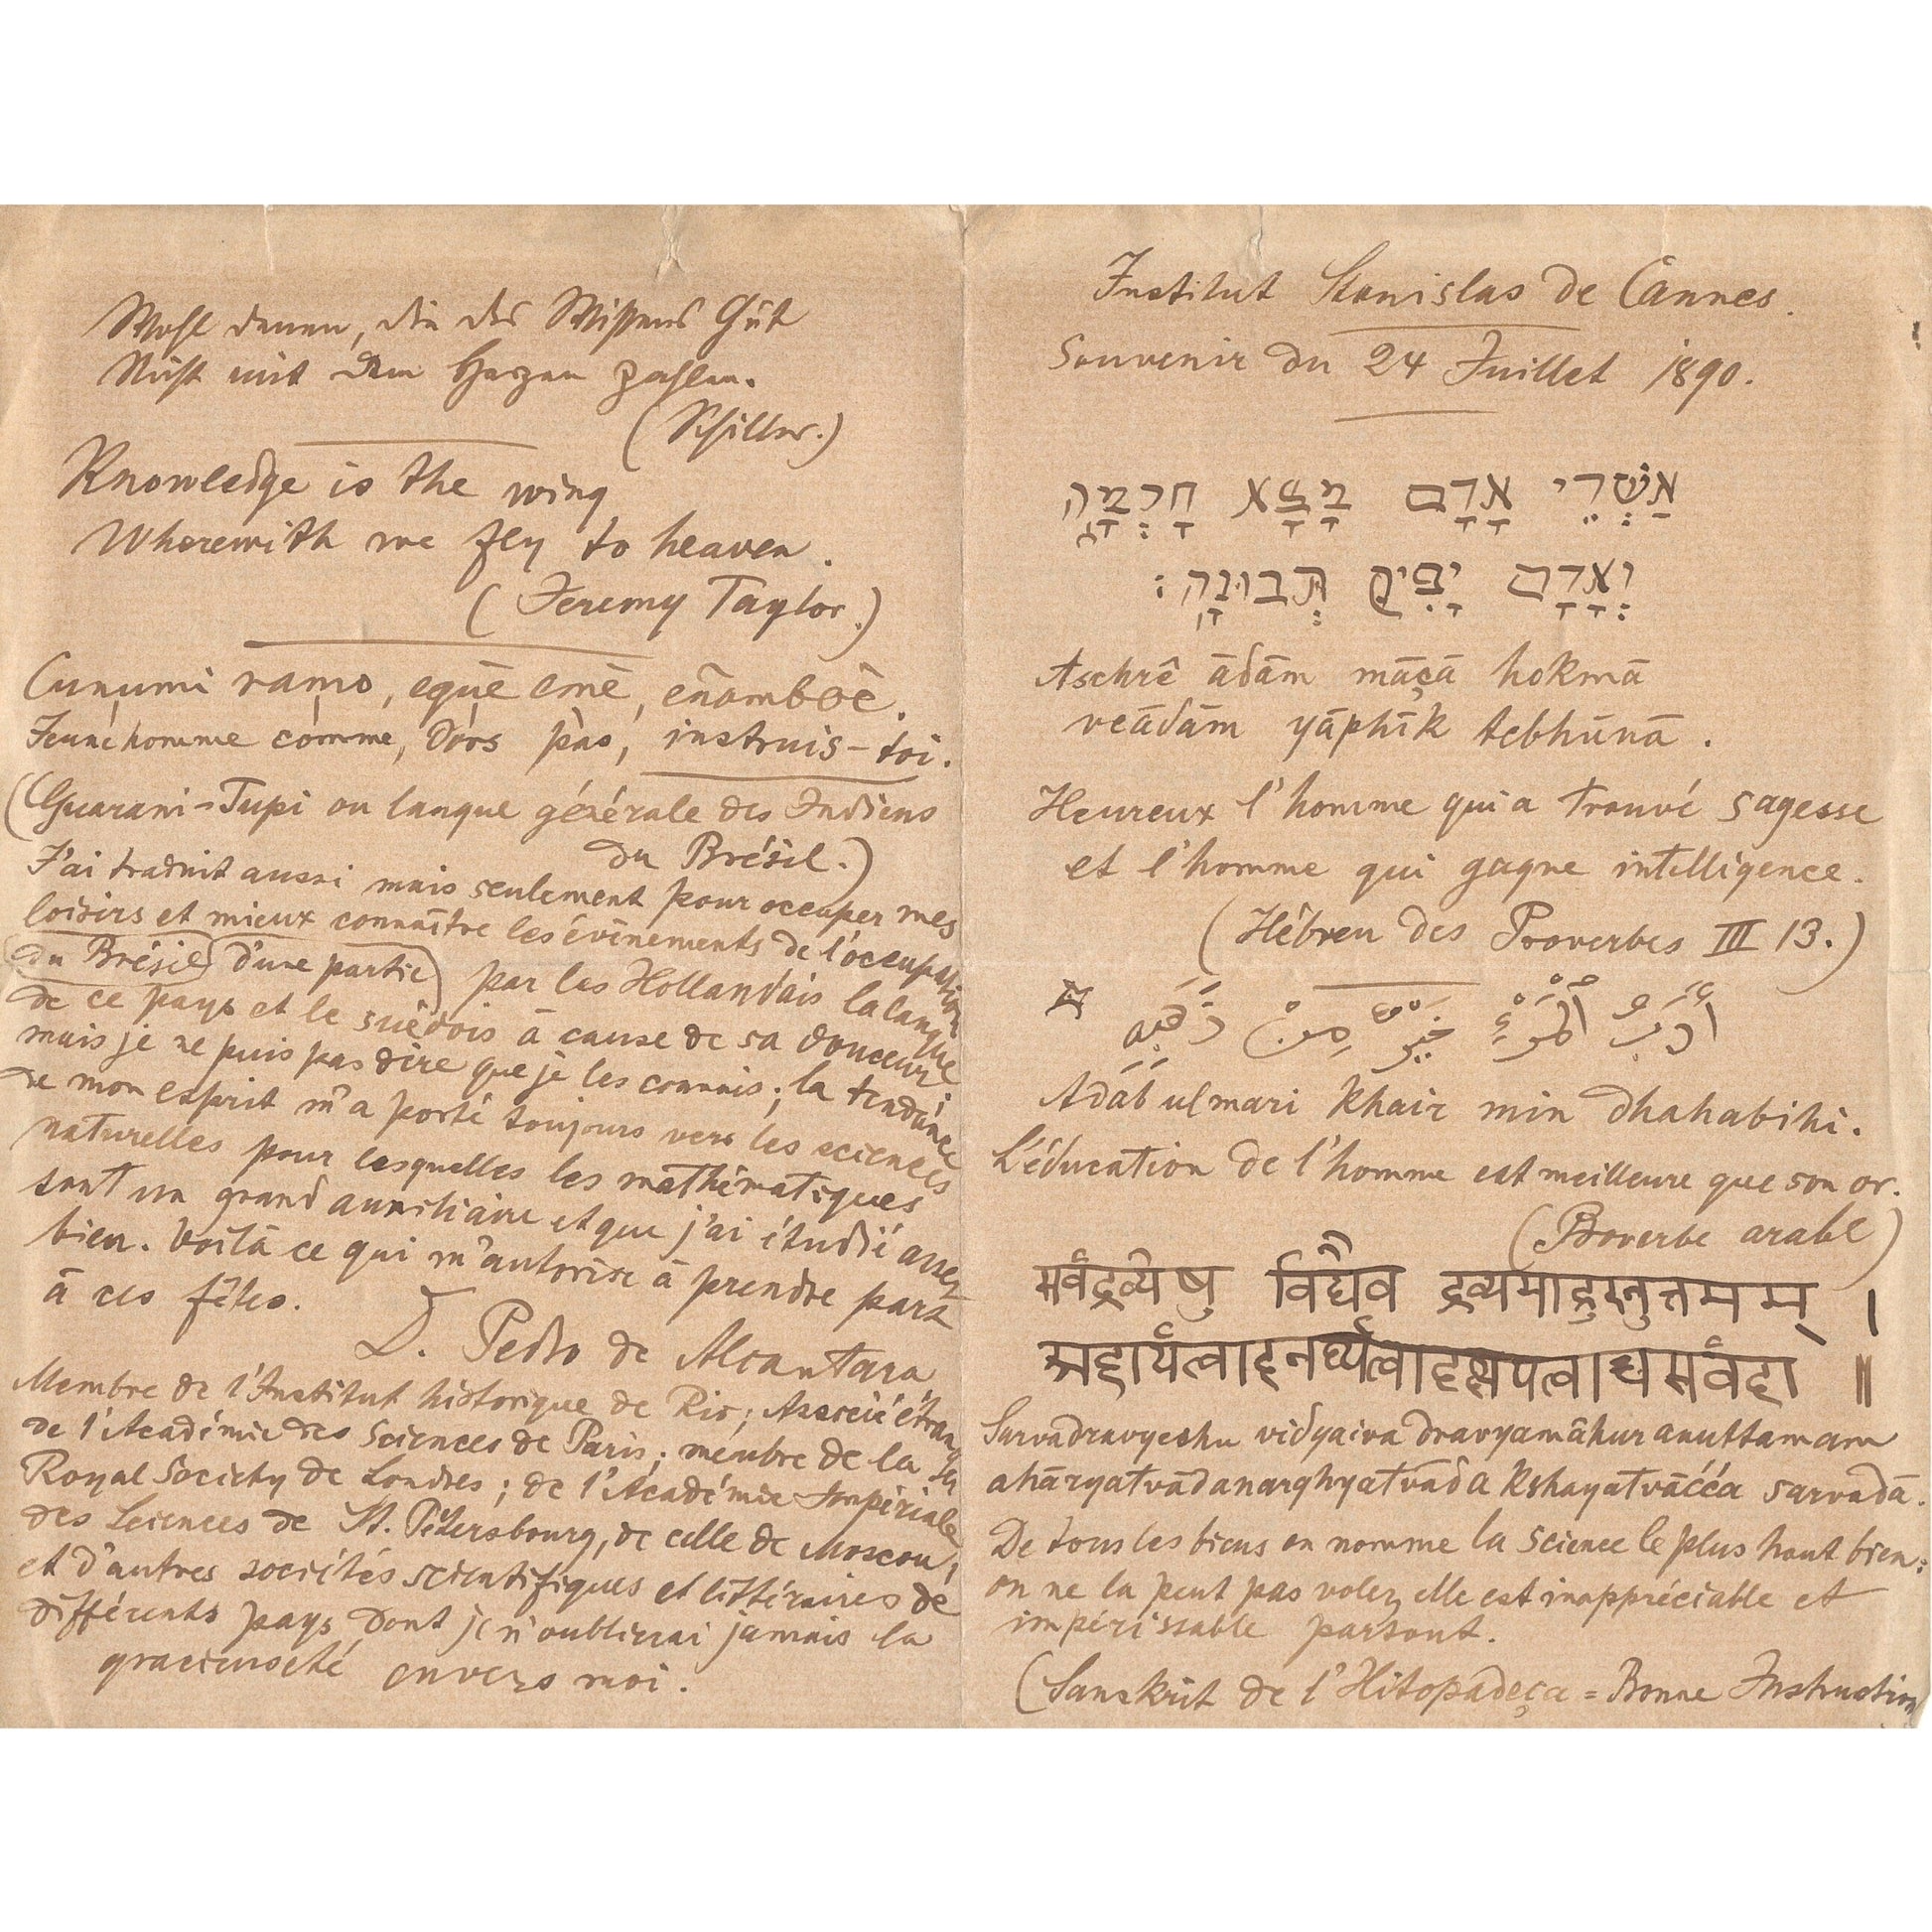 Institut Stanislas de Cannes.
Souvenir du 24 Juillet 1890.
אַשְׁרֵי אָדָם מָצָא חָכְמָה
וְאָדָם יָפִיק תְּבוּנָה׃
Aschrê ādām māçā hokmā
veādām yāphīk tebhūnā.
Heureux l'homme qui a trouvé sagesse
et l'homme qui gagne intelligence.
(Hébreu des Proverbes III 13.)
أَدَبُ الْمَرْءِ خَيْرٌ مِنْ ذَهَبِهِ
Adab ul mari khair min dhahabihi.
L'éducation de l'homme est meilleure que son or.
(Proverbe arabe)
सर्वद्रव्येषु विद्यैव द्रव्यमाहुरनुत्तमम् ।
अहार्यत्वादनर्घ्यत्वादक्षयत्वाच्च सर्वदा ॥
Sarvadravyeshu vidyaiva dravyamāhur anuttamam
ahāryatvādanarghyatvāda kshayatvāćća sarvadā.
De tous les biens on nomme la science le plus haut bien:
on ne la peut pas voler, elle est inappréciable et
impérissable partout.
(Sanskrit de l'Hitopadeça = Bonne Instruction
Wohl denen, die des Wissens Gut
Nicht mit dem Herzen zahlen.
(Schiller.)
Knowledge is the wing
Wherewith we fly to heaven.
(Jeremy Taylor.)
Cunumi ramo, equē emē, eñamboē.
Jeune homme comme, dors pas, instruis-toi.
(Guarani-Tupi ou langue générale des Indiens
du Brésil.)
J'ai traduit aussi mais seulement pour occuper mes
loisirs et mieux connaître les évènements de l'occupation
du Brésil d'une partie par les Hollandais la langue
de ce pays et le suédois à cause de sa douceur
mais je ne puis pas dire que je les connais; la tendance
de mon esprit m'a porté toujours vers les sciences
naturelles pour lesquelles les mathématiques
sont un grand auxiliaire et que j'ai étudié assez
bien. Voilà ce qui m'autorise à prendre part
à ces fêtes.
D. Pedro de Alcantara
Membre de l'Institut historique de Rio; Associé étranger
de l'Académie des Sciences de Paris; membre de la
Royal Society de Londres; de l'Académie Impériale
des Sciences de St. Pétersbourg, de celle de Moscou,
et d'autres sociétés scientifiques et littéraires de
différents pays dont je n'oublierai jamais la
gracieuseté envers moi.